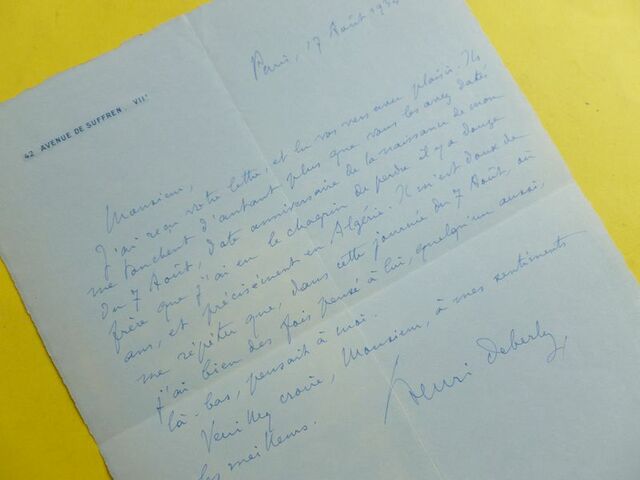 42 AVENUE DE SUFFREN. VIIᵉ
Paris, 17 Août
Monsieur,
J'ai reçu votre lettre et lu vos vers avec plaisir. Ils
me touchent d'autant plus que vous les avez datés
du 7 Août, date anniversaire de la naissance de mon
frère que j'ai eu le chagrin de perdre il y a douze
ans, et précisément en Algérie. Il m'est doux de
me répéter que, dans cette journée du 7 Août, où
j'ai bien des fois pensé à lui, quelqu'un aussi,
là-bas, pensait à moi.
Veuillez croire, Monsieur, à mes sentiments
les meilleurs.
Henri Deberly